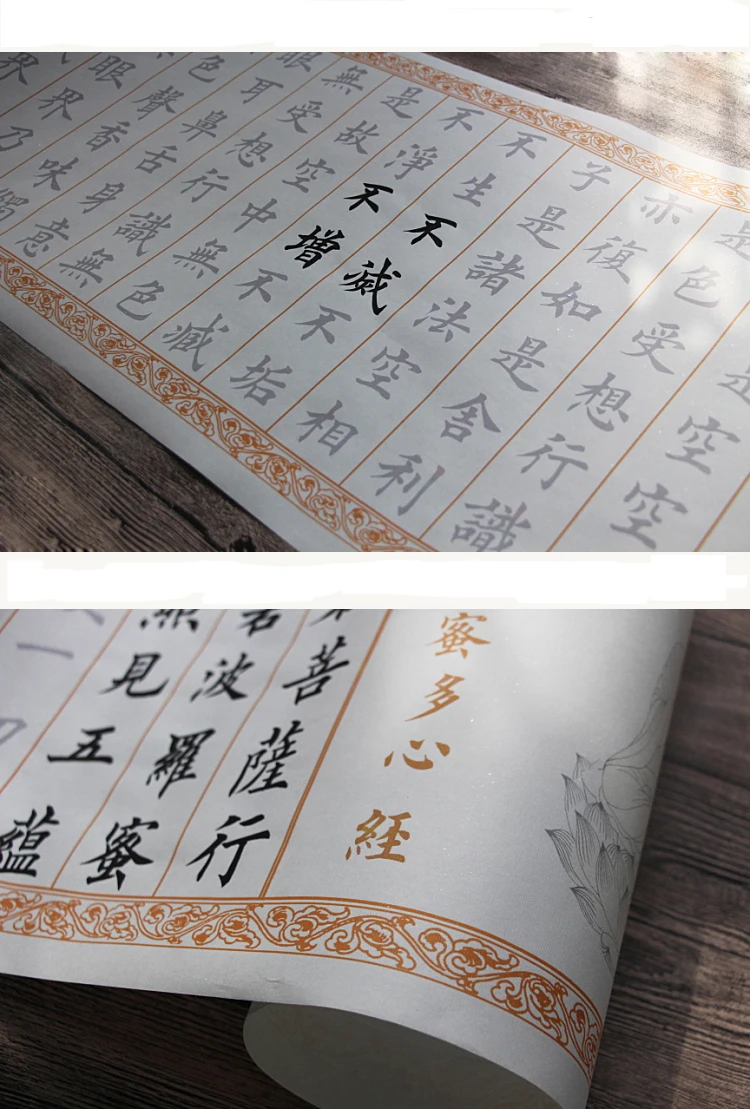 是空空
是色受想行識
亦復如是舍利
子是諸法空相
不生不滅不垢
不淨不增不減
是故空中無色
無受想行識無
眼耳鼻舌身意
色聲香味觸
眼界乃
界
蜜多心經
菩薩行
若波羅蜜
照見五蘊
一